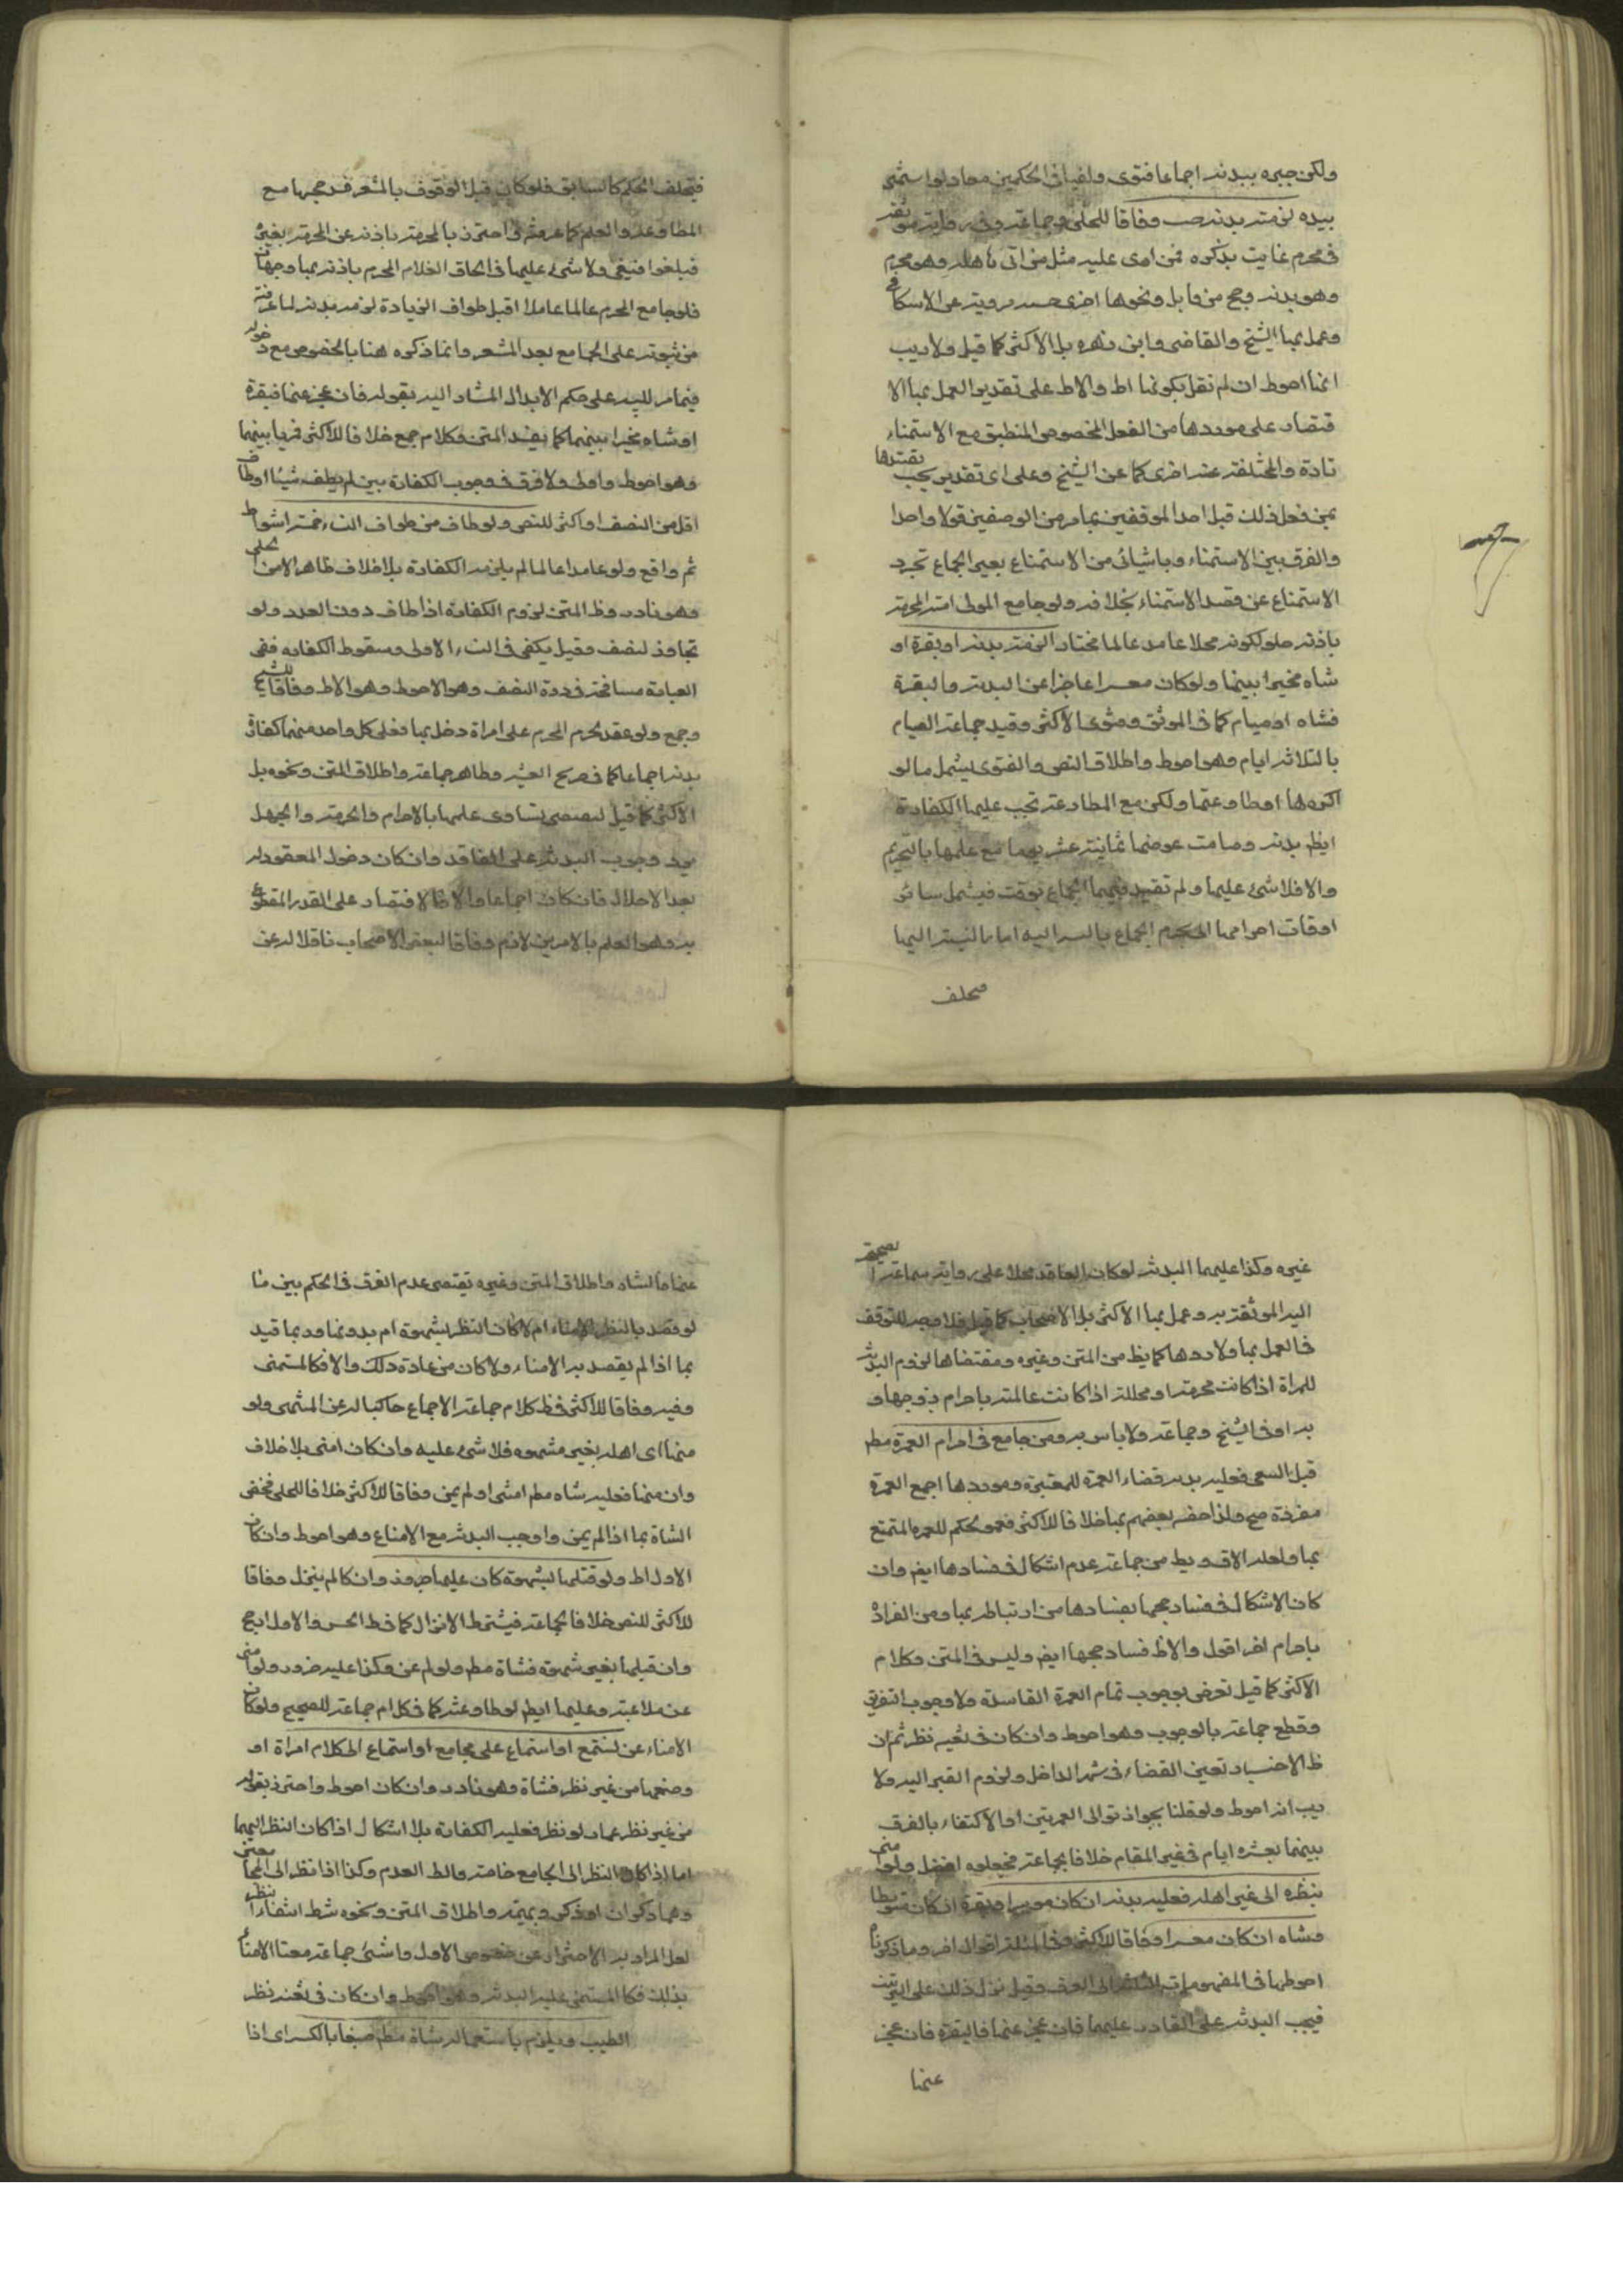 ولكن جبره ببدنه اجماعا فتوى ولفيا فى الحكمين معا ولو استمنى
بيده لزمته بدنه حسب وفاقا للحلى وجماعة وفى رواية موثقة
فى محرم عابث بذكره فمن امنى عليه مثل من اتى باهله وهو محرم
وهو بدنه وحج من قابل ونحوها اخرى مروية عن الاسكافى
وعمل بها الشيخ والقاضى وابن زهره بل الاكثر كما قيل ولا ريب
انها احوط ان لم نقل بكونها اظ والاظ على تقدير العمل بها الا
قتصار على موردها من الفعل المخصوص المنطبق مع الاستمناء
تارة والمختلفة عنه اخرى كما عن الشيخ وعلى اى تقدير يجب تقييدها
بمن فعل ذلك قبل احد الموقفين بما مر من الوصفين قولا واحدا
والفرق بين الاستمناء وما سيأتى من الاستمتاع بغير الجماع تجرد
الاستمتاع عن قصد الاستمناء بخلافه ولو جامع المولى امته المحرمة
باذنه حال كونه محلا عامدا عالما مختارا لزمته بدنه او بقرة او
شاه مخيرا بينها ولو كان معسرا عاجزا عن البدنه والبقرة
فشاه او صيام كما فى الموثق وفتوى الاكثر وقيد جماعة الصيام
بالثلاثه ايام وهو احوط واطلاق النص والفتوى يشمل ما لو
اكرهها او طاوعته ولكن مع المطاوعة تجب عليها الكفارة
ايظ بدنه وصامت عوضها ثمانية عشر يوما مع علمها بالتحريم
والا فلا شئ عليها ولم تقيد فيهما الجماع بوقت فيشمل سائر
اوقات احرامها المحرم الجماع بالنسبه اليه اما بالنسبة اليها
فيختلف
فيختلف الحكم كالسابق فلو كان قبل الوقوف بالمشعر فسد حجها مع
المطاوعة والعلم كما عرفته واحترز بالمحرمة باذنه عن المحرمة بغيره
فيلغوا فيغى ولا شئ عليهما فى الحاق الغلام المحرم باذنه بها وجهان
فلو جامع المحرم عالما عامدا قبل طواف الزيادة لزمه بدنه لما عرفته
من ثبوته على الجامع بعد المشعر وانما ذكره هنا بالخصوص مع دخوله
فيما مر للتنبيه على حكم الابدال المشار اليه بقوله فان عجز عنها فبقرة
او شاه مخيرا بينهما كما يفيده المتن وكلام جمع خلافا للاكثر فرتبا بينهما
وهو احوط واولى ولا فرق فى وجوب الكفارة بين لم يطف شيئا او طاف
اقل من النصف او اكثر للنص ولو طاف من طواف النساء خمسة اشواط
ثم واقع ولو عامدا عالما لم يلزمه الكفارة بلا خلاف ظاهر الا من الحلى
وهو نادر وظ المتن لزوم الكفارة اذا طاف دون العدد ولو
تجاوز النصف وقيل يكفى فى النساء الاولى وسقوط الكفاره ففى
العبارة مسامحة مجاوزة النصف وهو الاحوط وهو الاظ وفاقا للشيخ
وجمع ولو عقد محرم لمحرم على امراة دخل بها فعلى كل واحد منهما كفارة
بدنه اجماعا كما فى صريح الغنية وظاهر جماعة واطلاق المتن ونحوه بل
الاكثر كما قيل يقتضى تساوى علمهما بالاحرام والحرمة والجهل
فى وجوب البدنة على العاقد وان كان دخول المعقود له
بعد الاحلال فان كان اجماعا والا فالاقتصار على القدر المقطوع
به وهو العلم بالامرين لازم وفاقا لبعض الاصحاب ناقلا له عن
غيره وكذا عليهما البدنه لو كان العاقد محلا على رواية سماعة الصحيحة
اليه الموثقة به وعمل بها الاكثر بل الاصحاب كما قيل فلا وجه للتوقف
فى العمل بها ولا ردها كما يظ من المتن وغيره ومقتضاها لزوم البدنه
للمراة اذا كانت محرمة او محللة اذا كانت عالمة باحرام زوجها و
به افتى الشيخ وجماعة ولا باس به ومن جامع فى احرام العمرة مط
قبل السعى فعليه بدنه قضاء العمرة للمعتبرة وموردها اجمع العمرة
مفردة صح ولذا خصه بعضهم بها خلافا للاكثر فعموا الحكم للعمرة المتمتع
بها ولعله الاقوى ويظ من جماعة عدم اشكال فى فسادها ايض وان
كان الاشكال فى فساد حجها بفسادها من ارتباطه بها ومن انفراده
باحرام اخر اقول والاظ فساد حجها ايض وليس فى المتن وكلام
الاكثر كما قيل تعرض لوجوب تمام العمرة الفاسدة ولا وجوب التفريق
وقطع جماعة بالوجوب وهو احوط وان كان فى تعينه نظر ثم ان
ظ الاخبار تعين القضاء فى شهر الداخل ولزوم الصبر اليه ولا
ريب انه احوط ولو قلنا بجواز توالى العمرتين او الاكتفاء بالفرق
بينهما بعشره ايام فى غير المقام خلافا لجماعة فجعلوه افضل ولو امنى
بنظره الى غير اهله فعليه بدنه ان كان موسرا وبقرة ان كان متوسطا
وشاه ان كان معسرا وفاقا للاكثر وفى المسئلة اقوال اخر وما ذكرناه
احوطها فى المفهوم الى العرف وقيل نزل ذلك على الترتيب
فيجب البدنه على القادر عليهما فان عجز عنها فالبقرة فان عجز
عنها
عنها فالشاه واطلاق المتن وغيره يقتضى عدم الفرق فى الحكم بين ما
لو قصد بالنظر الامناء ام لا كان النظر بشهوة ام بدونها وربما قيد
بما اذا لم يقصد به الامناء ولا كان من عادة ذلك والا فكالمستمنى
وفيه وفاقا للاكثر فظ كلام جماعة الاجماع حاكيا له عن المنتهى ولو
منها اى اهله بغير شهوه فلا شئ عليه وان كان امنى بلا خلاف
وان منها فعليه شاه مط امنى او لم يمن وفاقا للاكثر خلافا للحلى فخص
الشاة بما اذا لم يمن واوجب البدنة مع الامناء وهو احوط وان كان
الاول اظ ولو قبلها بشهوة كان عليه جزور وان كان لم ينزل وفاقا
للاكثر للنص خلافا لجماعة فيشترط الانزال كما فى ظ الحسن والاول ارجح
وان قبلها بغير شهوه فشاة مط ولو لم يمن وكذا عليه جزور ولو امنى
عن ملاعبة وعليها ايظ لو طاوعته كما فى كلام جماعة للصحيح ولو كان
الامناء عن تستمع او استماع على مجامع او استماع الى كلام امراة او
وصفها من غير نظر فشاة وهو نادر وان كان احوط واحترز بقوله
من غير نظر عما لو نظر فعليه الكفارة بلا اشكال اذا كان النظر اليهما
اما اذا كان النظر الى الجامع خاصة والظ العدم وكذا اذا نظر الى المجامعين
وهما ذكران او ذكر وبهيمة واطلاق المتن ونحوه شرط انتفاء النظر
لعل المراد به الاحتراز عن خصوص الاول واستثنى جماعة معتاد الامناء
بذلك فكالمستمنى عليه البدنه وهو احوط وان كان فى تعينه نظر
الطيب ويلزم باستعماله شاة مط صبغا بالكسر اى اذا